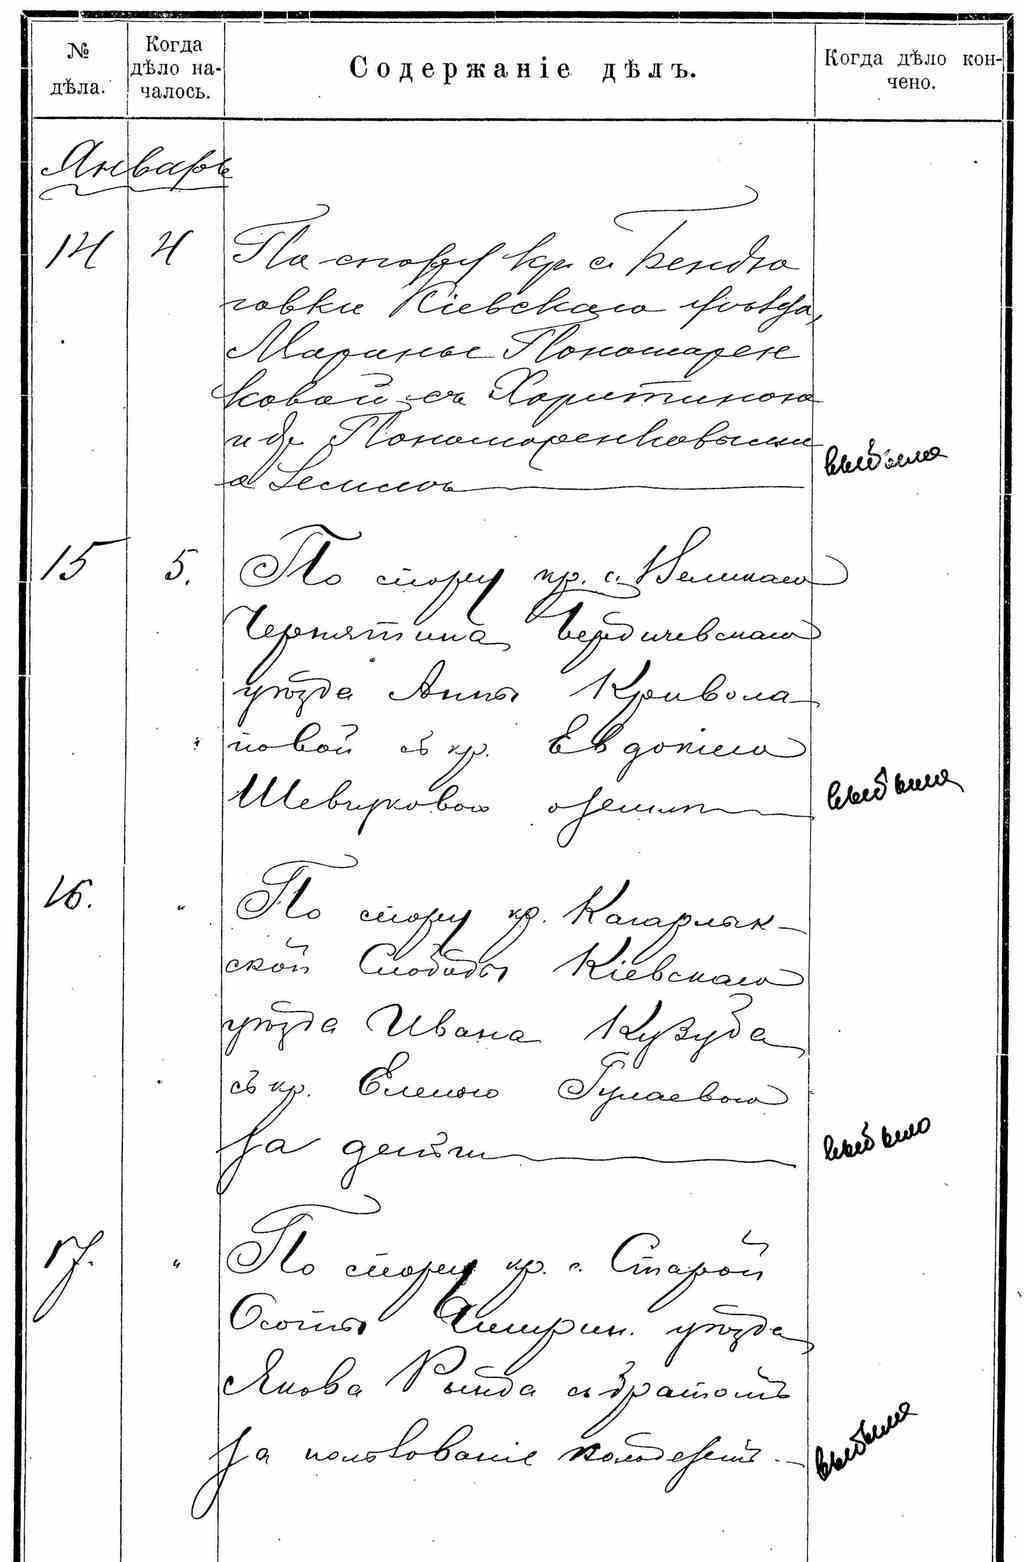 № дѣла.
Когда
дѣло на-
чалось.
Содержаніе дѣлъ.
Когда дѣло кон-
чено.
Январь
14 4 По спору кр. с. Бендю
говки Кіевскаго уѣзда,
Марины Пономарен
ковой съ Харитиною
и др Пономаренковыми
о землѣ
выбыла
15 5. По спору кр. с. Великаго
Чернятина Бердичевскаго
уѣзда Анны Кривола
повой съ кр. Евдокіею
Шевчуковою о землѣ
выбыла
16. " По спору кр. Кагарлык-
ской Слободы Кіевскаго
уѣзда Ивана Кузуба
съ кр. Еленою Гулаевою
за дѣти
выбыло
17. " По спору кр. с. Старой
Осоты Чигрин. уѣзда
Якова Рында съ братомъ
за пользованіе колодезем.
выбыла